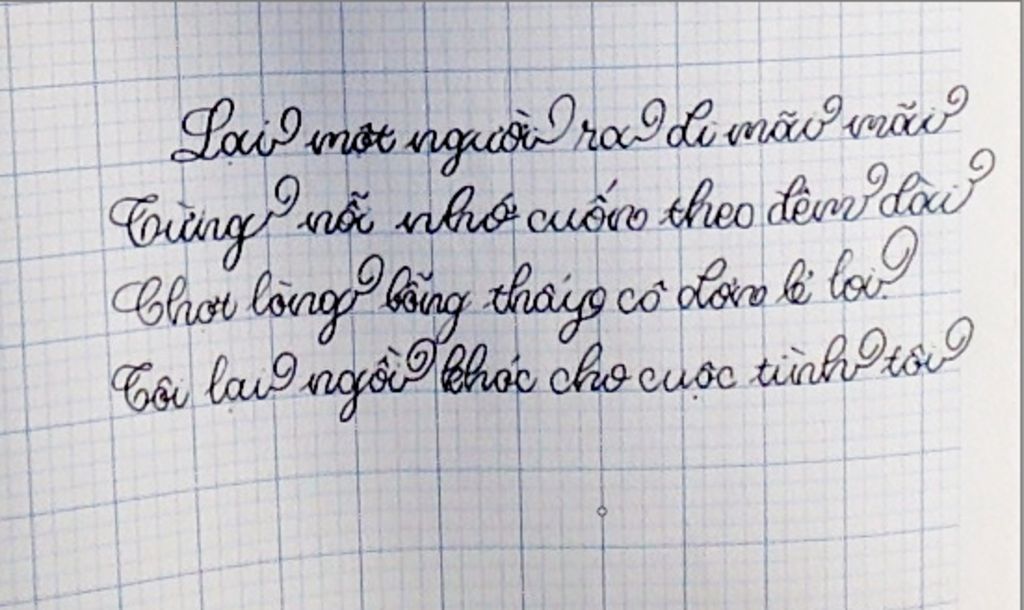 Lại một người ra đi mãi mãi
Từng nỗi nhớ cuốn theo đêm dài
Chợt lòng bỗng thấy cô đơn lẻ loi
Tôi lại ngồi khóc cho cuộc tình tôi